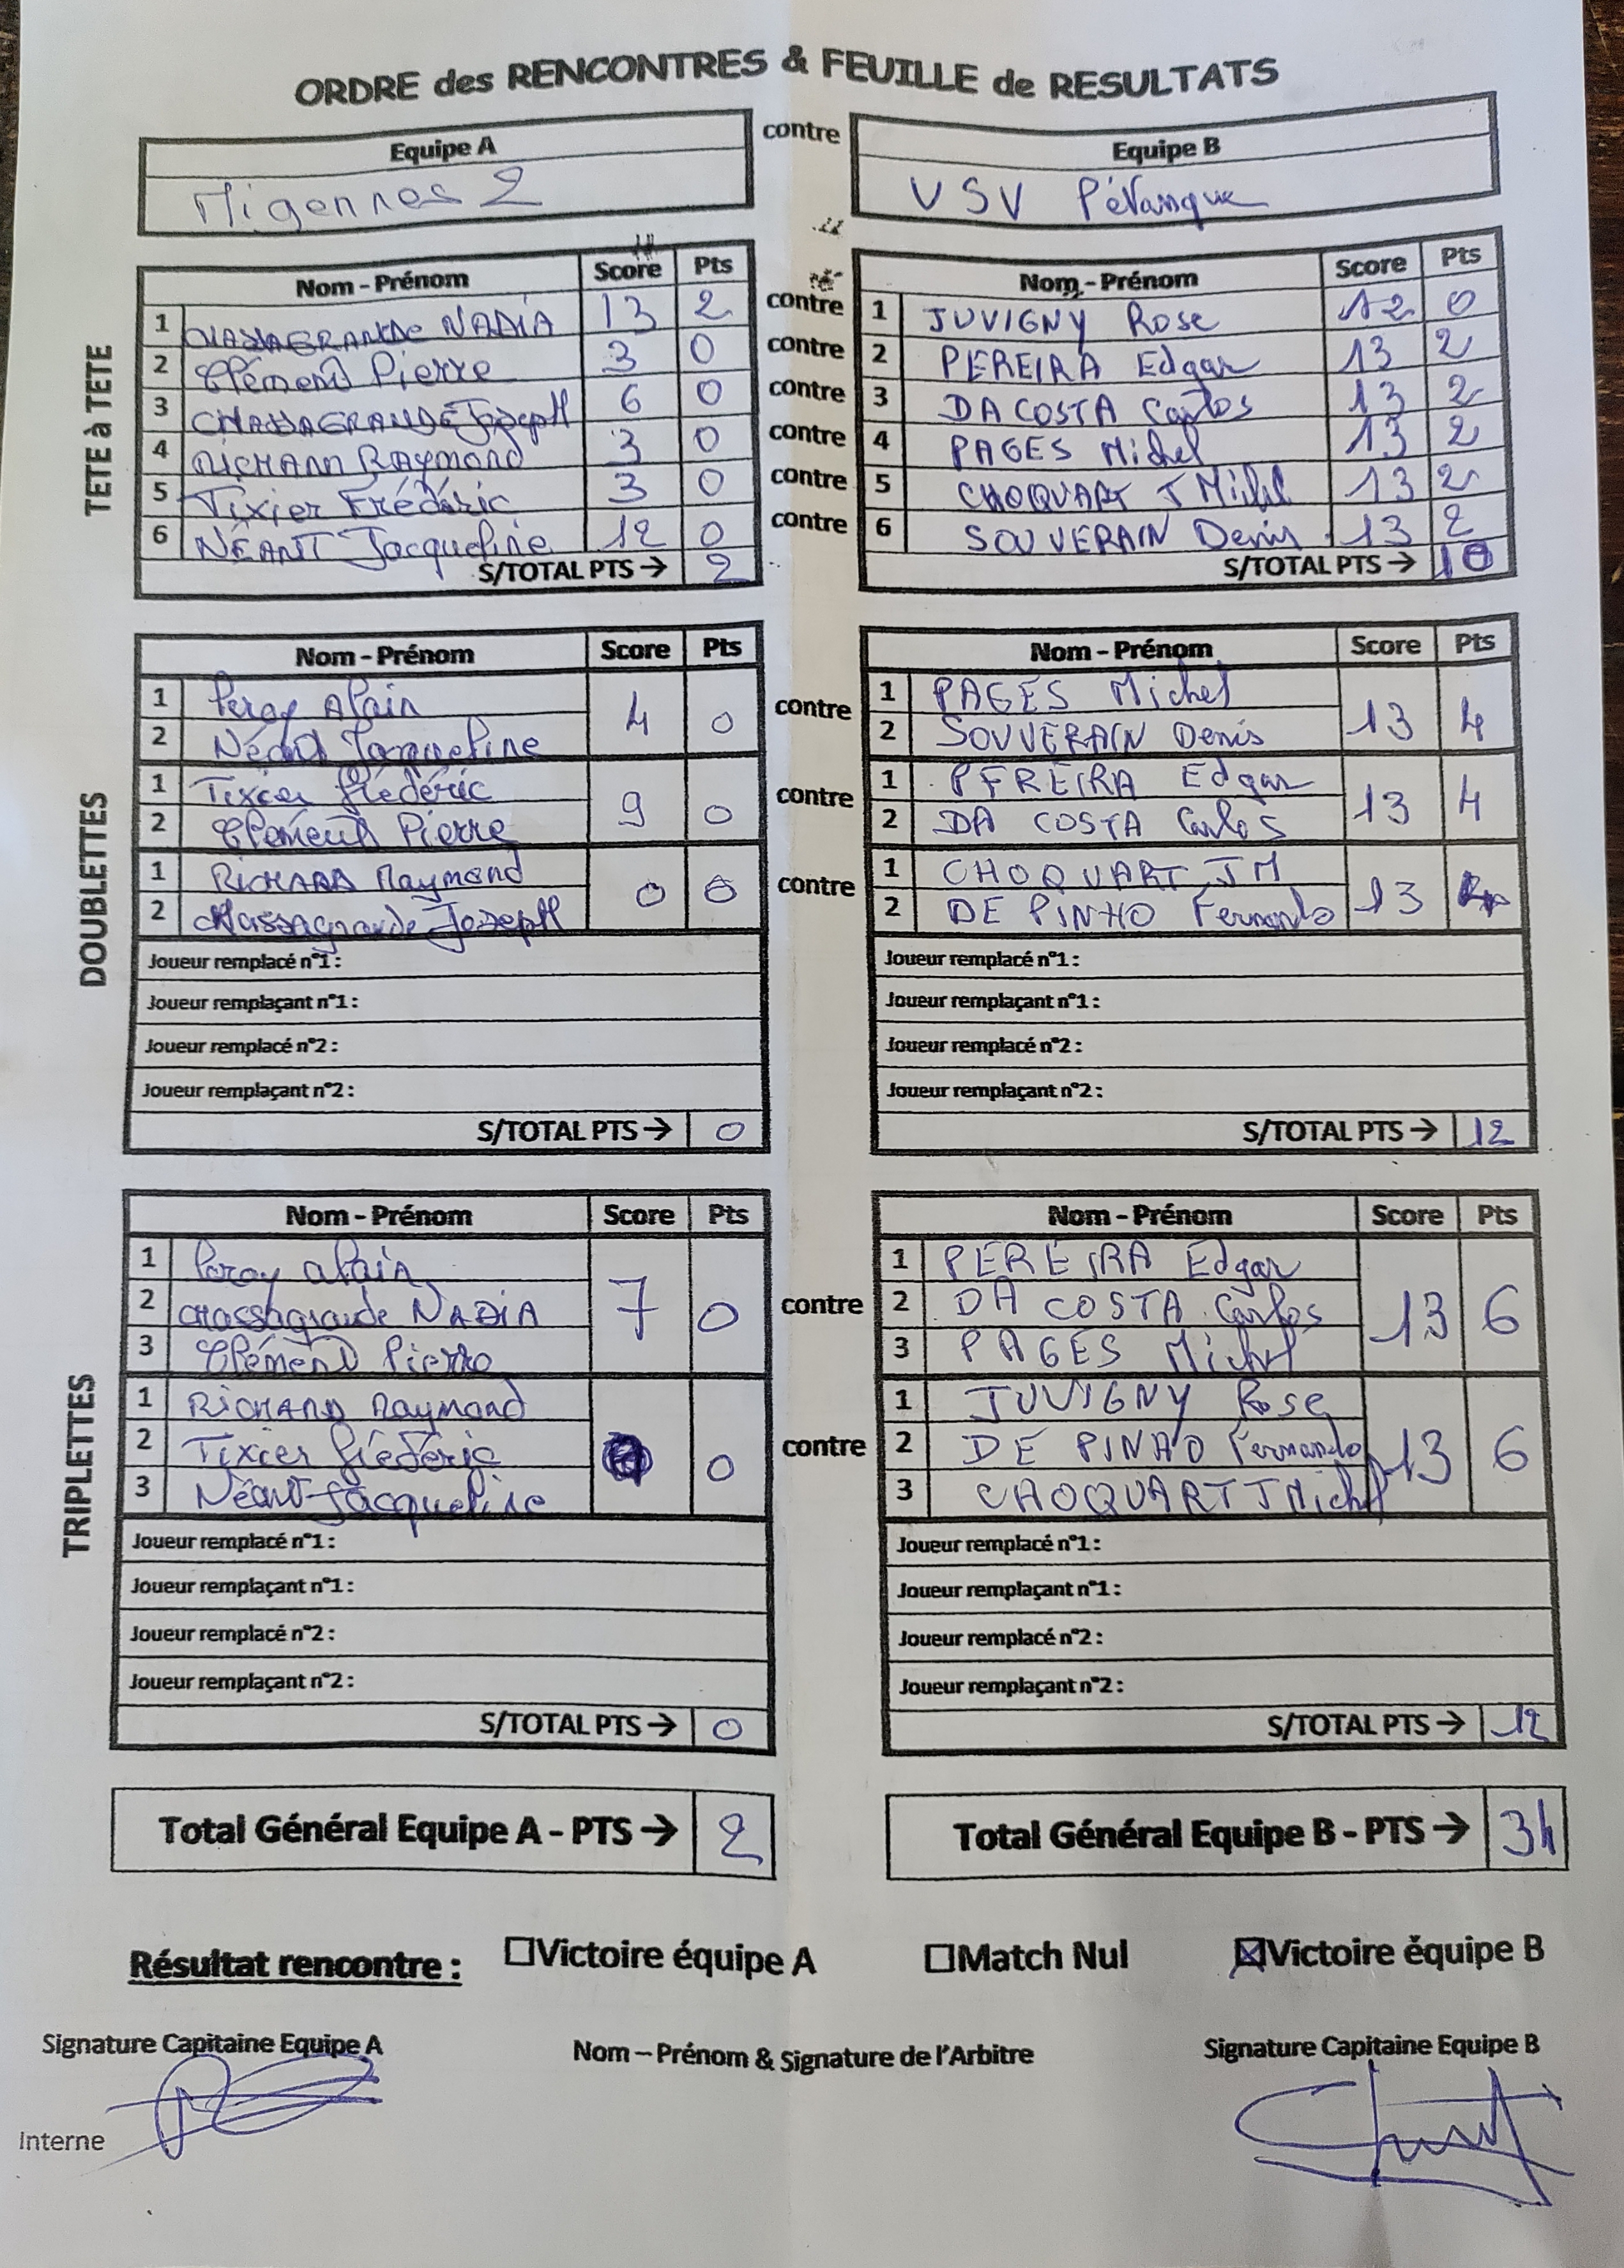 ORDRE des RENCONTRES & FEUILLE de RESULTATS
Equipe A contre Equipe B
Migennes 2 USV Pétanque
TETE à TETE
Nom - Prénom Score Pts Nom - Prénom Score Pts
1 CHASSAGRANDE NADIA 13 2 contre 1 JUVIGNY Rose 12 0
2 Clément Pierre 3 0 contre 2 PEREIRA Edgar 13 2
3 CHASSAGRANDE Joseph 6 0 contre 3 DA COSTA Carlos 13 2
4 RICHARD Raymond 3 0 contre 4 PAGES Michel 13 2
5 Tixier Frédéric 3 0 contre 5 CHOQUART J Michel 13 2
6 NÉANT Jacqueline 12 0 contre 6 SOUVERAIN Denis 13 2
S/TOTAL PTS → 2 S/TOTAL PTS → 10
DOUBLETTES
Nom - Prénom Score Pts Nom - Prénom Score Pts
1 Peroy Alain 4 0 contre 1 PAGES Michel 13 4
2 Néant Jacqueline 2 SOUVERAIN Denis
1 Tixier Frédéric 9 0 contre 1 PEREIRA Edgar 13 4
2 Clément Pierre 2 DA COSTA Carlos
1 RICHARD Raymond 0 0 contre 1 CHOQUART JM 13 4
2 Chassagrande Joseph 2 DE PINHO Fernando
Joueur remplacé n°1 : Joueur remplacé n°1 :
Joueur remplaçant n°1 : Joueur remplaçant n°1 :
Joueur remplacé n°2 : Joueur remplacé n°2 :
Joueur remplaçant n°2 : Joueur remplaçant n°2 :
S/TOTAL PTS → 0 S/TOTAL PTS → 12
TRIPLETTES
Nom - Prénom Score Pts Nom - Prénom Score Pts
1 Peroy alain 7 0 contre 1 PEREIRA Edgar 13 6
2 chassagrande NADIA 2 DA COSTA Carlos
3 Clément Pierre 3 PAGES Michel
1 RICHARD Raymond 0 contre 1 JUVIGNY Rose 13 6
2 Tixier Frédéric 2 DE PINHO Fernando
3 Néant Jacqueline 3 CHOQUART J Michel
Joueur remplacé n°1 : Joueur remplacé n°1 :
Joueur remplaçant n°1 : Joueur remplaçant n°1 :
Joueur remplacé n°2 : Joueur remplacé n°2 :
Joueur remplaçant n°2 : Joueur remplaçant n°2 :
S/TOTAL PTS → 0 S/TOTAL PTS → 12
Total Général Equipe A - PTS → 2 Total Général Equipe B - PTS → 34
Résultat rencontre : ☐Victoire équipe A ☐Match Nul ☒Victoire équipe B
Signature Capitaine Equipe A Nom – Prénom & Signature de l'Arbitre Signature Capitaine Equipe B
Interne